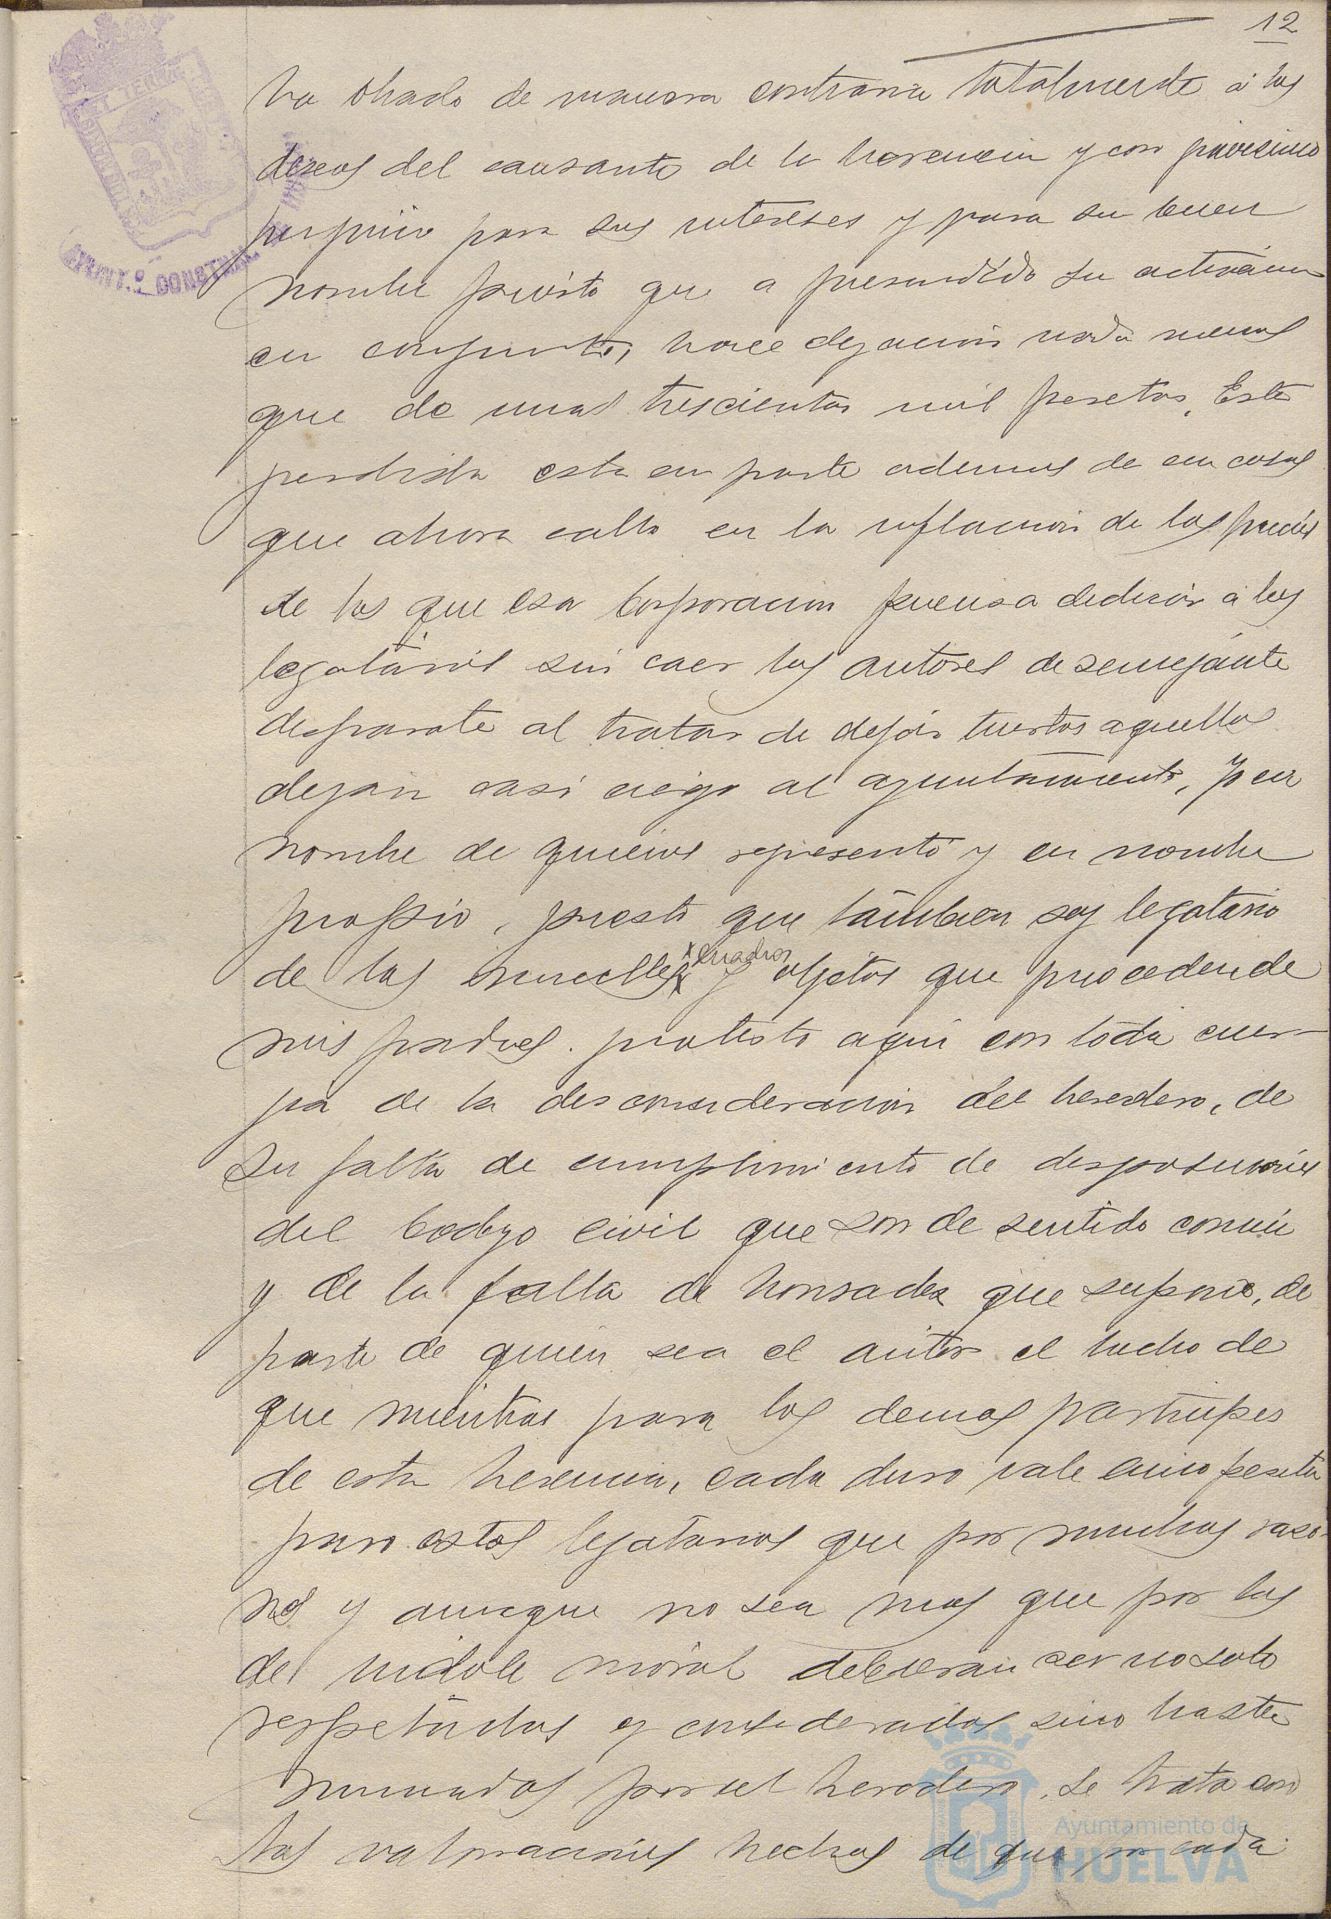 12
ha obrado de manera contraria totalmente á los
deseos del causante de la herencia y con gravisimo
perjuicio para sus intereses y para su buen
nombre puesto que a presundido su actuacion
en conjunto, hace dejacion nada menos
que de unas trescientas mil pesetas. Esta
perdida esta en parte ademas de en cosas
que ahora callo en la inflacion de los precios
de los que esa Corporacion piensa deducir á los
legatarios sin caer los autores de semejante
disparate al tratar de dejar tuertos aquellos
dejan casi ciego al ayuntamiento, y en
nombre de quienes represento y en nombre
propio, puesto que tambien soy legatario
de los muebles cuadros y objetos que proceden de
mis padres. protesto aqui con toda ener-
jia de la desconsideracion del heredero, de
su falta de cumplimiento de disposiciones
del Codigo civil que son de sentido comun
y de la falta de honradez que supone, de
parte de quien sea el autor el hecho de
que mientras para los demas participes
de esta herencia, cada duro vale cinco pesetas
para estos legatarios que por muchas razo-
nes y aunque no sea mas que por las
de indole moral debieran ser no solo
respetados y considerados sino hasta
mimados por el heredero. se trata con
las valoraciones hechas de que por cada
AYUNT.º CONSTNAL. DE HUELVA
Ayuntamiento de
HUELVA